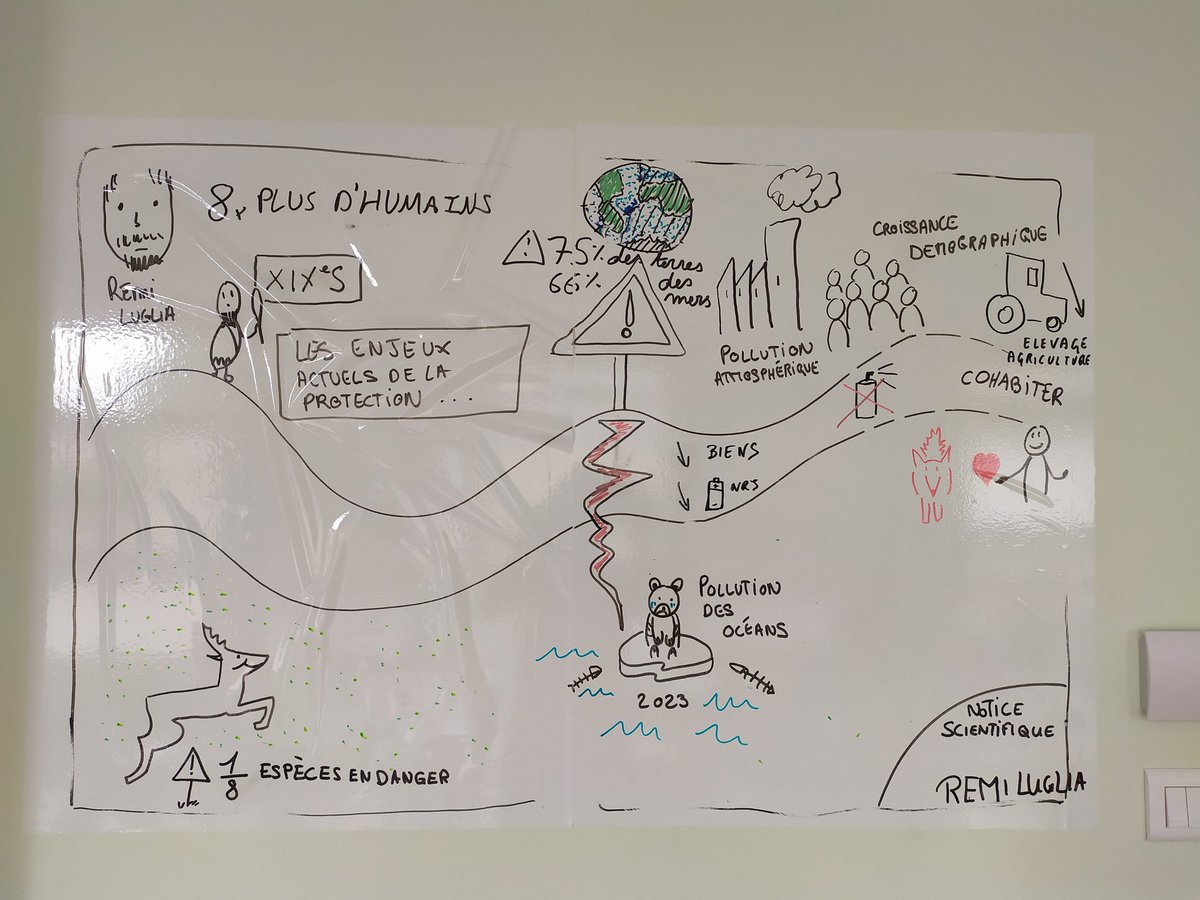 8x PLUS D'HUMAINS
REMI
LUGLIA
XIXeS
LES ENJEUX
ACTUELS DE LA
PROTECTION ...
75% des terres
66% des
mers
POLLUTION
ATMOSPHÉRIQUE
CROISSANCE
DEMOGRAPHIQUE
ELEVAGE
AGRICULTURE
COHABITER
BIENS
NRJ
POLLUTION
DES
OCÉANS
2023
1/8 ESPÈCES EN DANGER
NOTICE
SCIENTIFIQUE
REMI LUGLIA